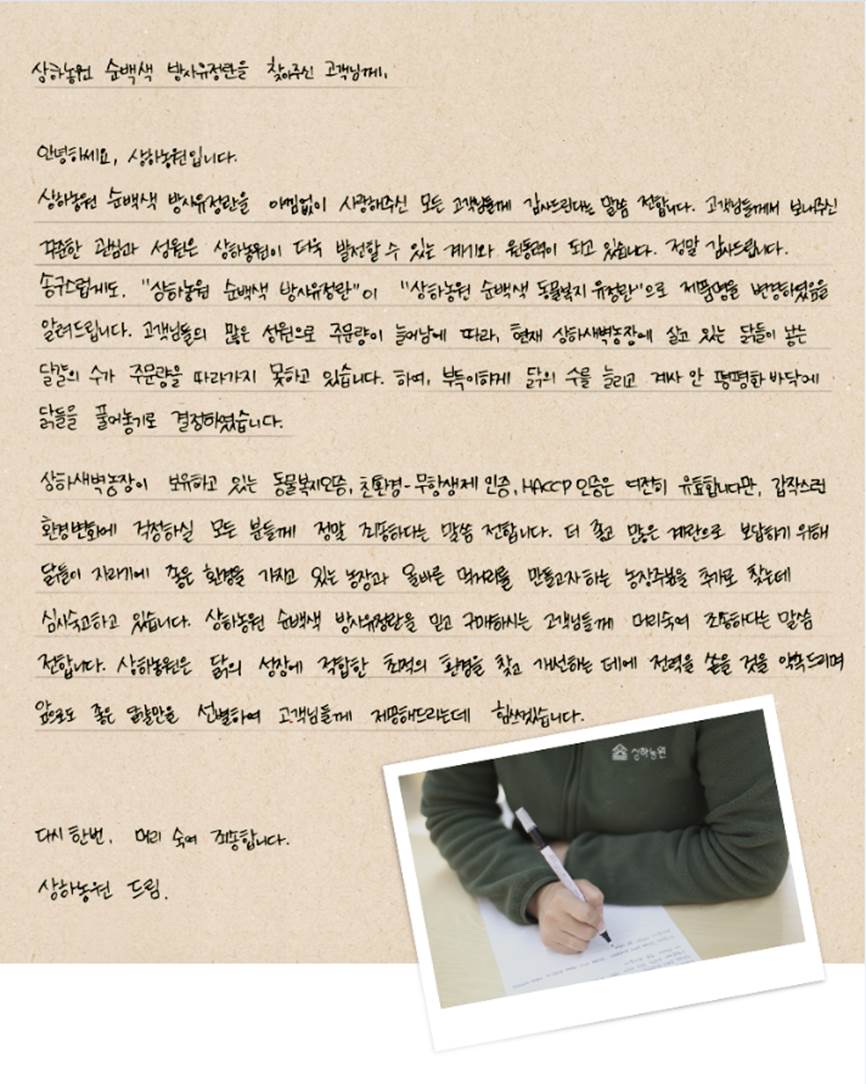 상하농원 순백색 방사유정란을 찾아주신 고객님께,
안녕하세요, 상하농원입니다.
상하농원 순백색 방사유정란을 아낌없이 사랑해주신 모든 고객님들께 감사드린다는 말씀 전합니다. 고객님들께서 보내주신
꾸준한 관심과 성원은 상하농원이 더욱 발전할 수 있는 계기와 원동력이 되고 있습니다. 정말 감사드립니다.
송구스럽게도, "상하농원 순백색 방사유정란"이 "상하농원 순백색 동물복지 유정란"으로 제품명을 변경하였음을
알려드립니다. 고객님들의 많은 성원으로 주문량이 늘어남에 따라, 현재 상하새벽농장에 살고 있는 닭들이 낳는
달걀의 수가 주문량을 따라가지 못하고 있습니다. 하여, 부득이하게 닭의 수를 늘리고 계사 안 평평한 바닥에
닭들을 풀어놓기로 결정하였습니다.
상하새벽농장이 보유하고 있는 동물복지인증, 친환경-무항생제 인증, HACCP 인증은 여전히 유효합니다만, 갑작스런
환경변화에 걱정하실 모든 분들께 정말 죄송하다는 말씀 전합니다. 더 좋고 많은 계란으로 보답하기 위해
닭들이 자라기에 좋은 환경을 가지고 있는 농장과 올바른 먹거리를 만들고자 하는 농장주분을 추가로 찾는데
심사숙고하고 있습니다. 상하농원 순백색 방사유정란을 믿고 구매하시는 고객님들께 머리숙여 죄송하다는 말씀
전합니다. 상하농원은 닭의 성장에 적합한 최적의 환경을 찾고 개선하는 데에 전력을 쏟을 것을 약속드리며
앞으로도 좋은 달걀만을 선별하여 고객님들께 제공해드리는데 힘쓰겠습니다.
다시 한번, 머리 숙여 죄송합니다.
상하농원 드림.
상하농원